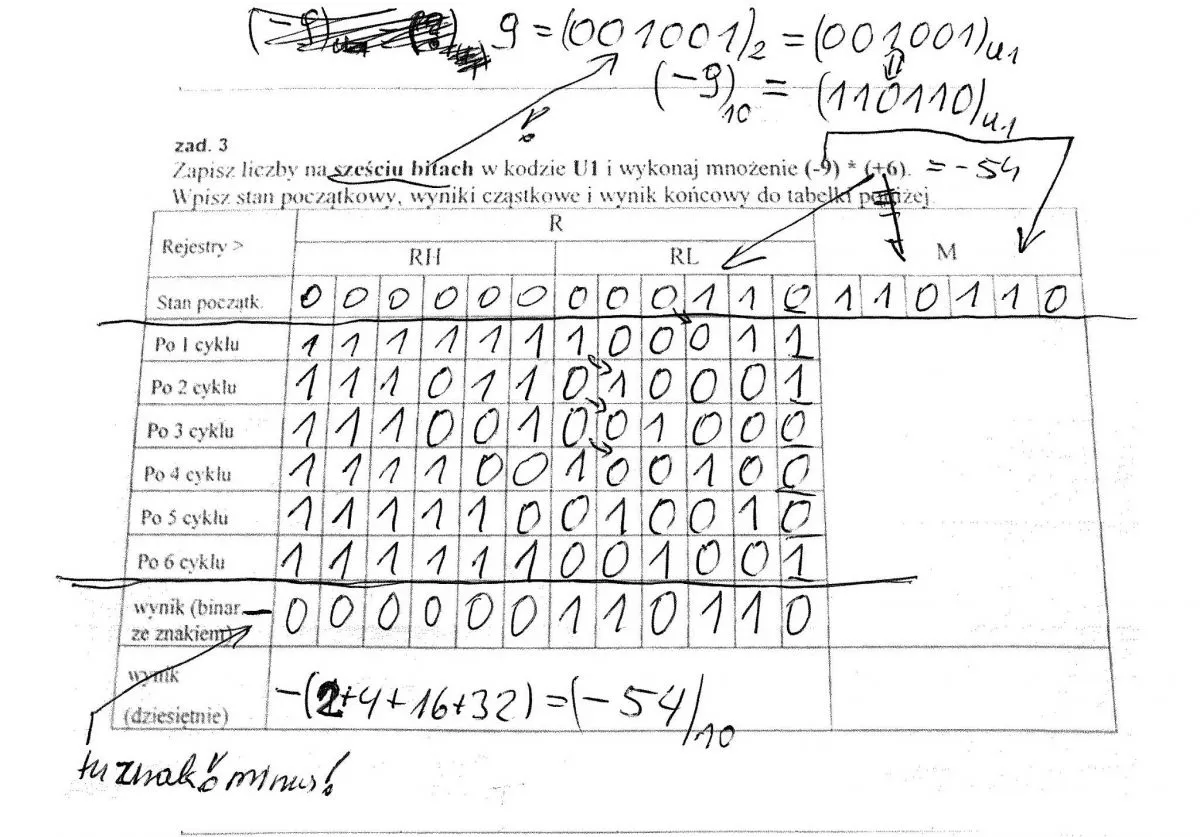 9 = (001001)₂ = (001001)U1
(-9)₁₀ = (110110)U1
zad. 3
Zapisz liczby na sześciu bitach w kodzie U1 i wykonaj mnożenie (-9) * (+6). = -54
Wpisz stan początkowy, wyniki cząstkowe i wynik końcowy do tabelki poniżej.
Rejestry > R
RH RL M
Stan początk. 0 0 0 0 0 0 0 0 0 1 1 0 1 1 0 1 1 0
Po 1 cyklu 1 1 1 1 1 1 1 0 0 0 1 1
Po 2 cyklu 1 1 1 0 1 1 0 1 0 0 0 1
Po 3 cyklu 1 1 1 0 0 1 0 0 1 0 0 0
Po 4 cyklu 1 1 1 1 0 0 1 0 0 1 0 0
Po 5 cyklu 1 1 1 1 1 0 0 1 0 0 1 0
Po 6 cyklu 1 1 1 1 1 1 0 0 1 0 0 1
wynik (binar. ze znakiem) - 0 0 0 0 0 0 1 1 0 1 1 0
wynik (dziesiętnie) -(2+4+16+32) = (-54)₁₀
tu znak minus!